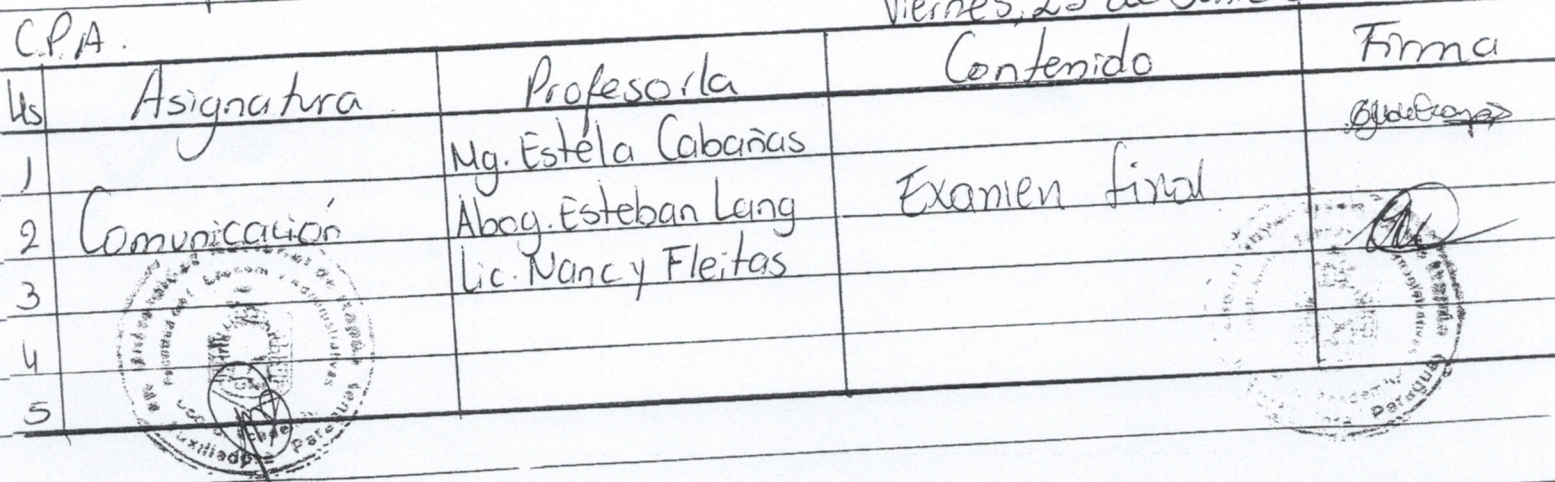 Viernes, 25 de
C.P.A.
Hs Asignatura Profesor/a Contenido Firma
1 Mg. Estela Cabañas
2 Comunicación Abog. Esteban Lang Examen final
3 Lic. Nancy Fleitas
4
5